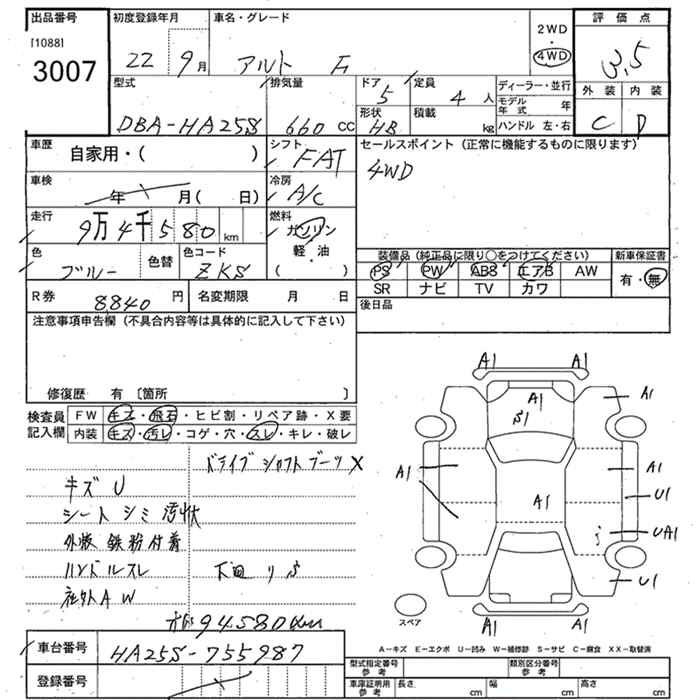 出品番号 初度登録年月 車名・グレード 2WD・4WD 評価点
[1088]
3007 22 9月 アルト F 3.5
型式 排気量 ドア 定員 ディーラー・並行 外装 内装
DBA-HA25S 660cc 5 4人 モデル年式 年 C D
形状 積載 ハンドル 左・右
HB kg
車歴 自家用・( ) シフト FAT セールスポイント(正常に機能するものに限ります)
4WD
車検 年 月( 日) 冷房 A/C
走行 9万4千580km 燃料 ガソリン 軽・油 ( )
色 ブルー 色替 色コード ZKS
装備品(純正品に限り○をつけてください) 新車保証書
PS PW ABS エアB AW 有・無
SR ナビ TV カワ
R券 8840円 名変期限 月 日 後日品
注意事項申告欄(不具合内容等は具体的に記入して下さい)
修復歴 有 〔箇所 〕
検査員記入欄 FW キズ・飛石・ヒビ割・リペア跡・X要
内装 キズ・汚レ・コゲ・穴・スレ・キレ・破レ
ドライブシャフトブーツ X
キズ U
シート シミ 汚状
外板 鉄粉付着
ハンドルスレ 下回り S
社外AW
94580km
A1 A1
A1 A1
S1
A1 A1
A1 U1
UA1
U1
A1 A1
スペア
A-キズ E-エクボ U-凹み W-補修跡 S-サビ C-腐食 XX-取替済
車台番号 HA25S-755987
登録番号
型式指定番号 参考 類別区分番号 参考
車庫証明用 参考 長さ cm 幅 cm 高さ cm